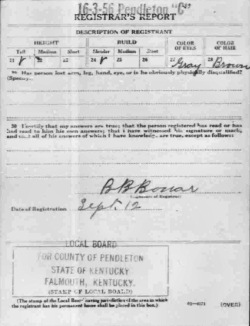 16-3-56 Pendleton "C"
REGISTRAR'S REPORT
DESCRIPTION OF REGISTRANT
HEIGHT BUILD COLOR OF EYES COLOR OF HAIR
Tall Medium Short Slender Medium Stout
21 22 23 24 25 26 27 Gray 28 Brown
29 Has person lost arm, leg, hand, eye, or is he obviously physically disqualified?
(Specify.)
30 I certify that my answers are true; that the person registered has read or has
had read to him his own answers; that I have witnessed his signature or mark,
and that all of his answers of which I have knowledge are true, except as follows:
B B Bonar
Date of Registration Sept. 12
LOCAL BOARD
FOR COUNTY OF PENDLETON
STATE OF KENTUCKY
FALMOUTH, KENTUCKY.
(STAMP OF LOCAL BOARD)
(The stamp of the Local Board having jurisdiction of the area in which
the registrant has his permanent home shall be placed in this box.)
(OVER)